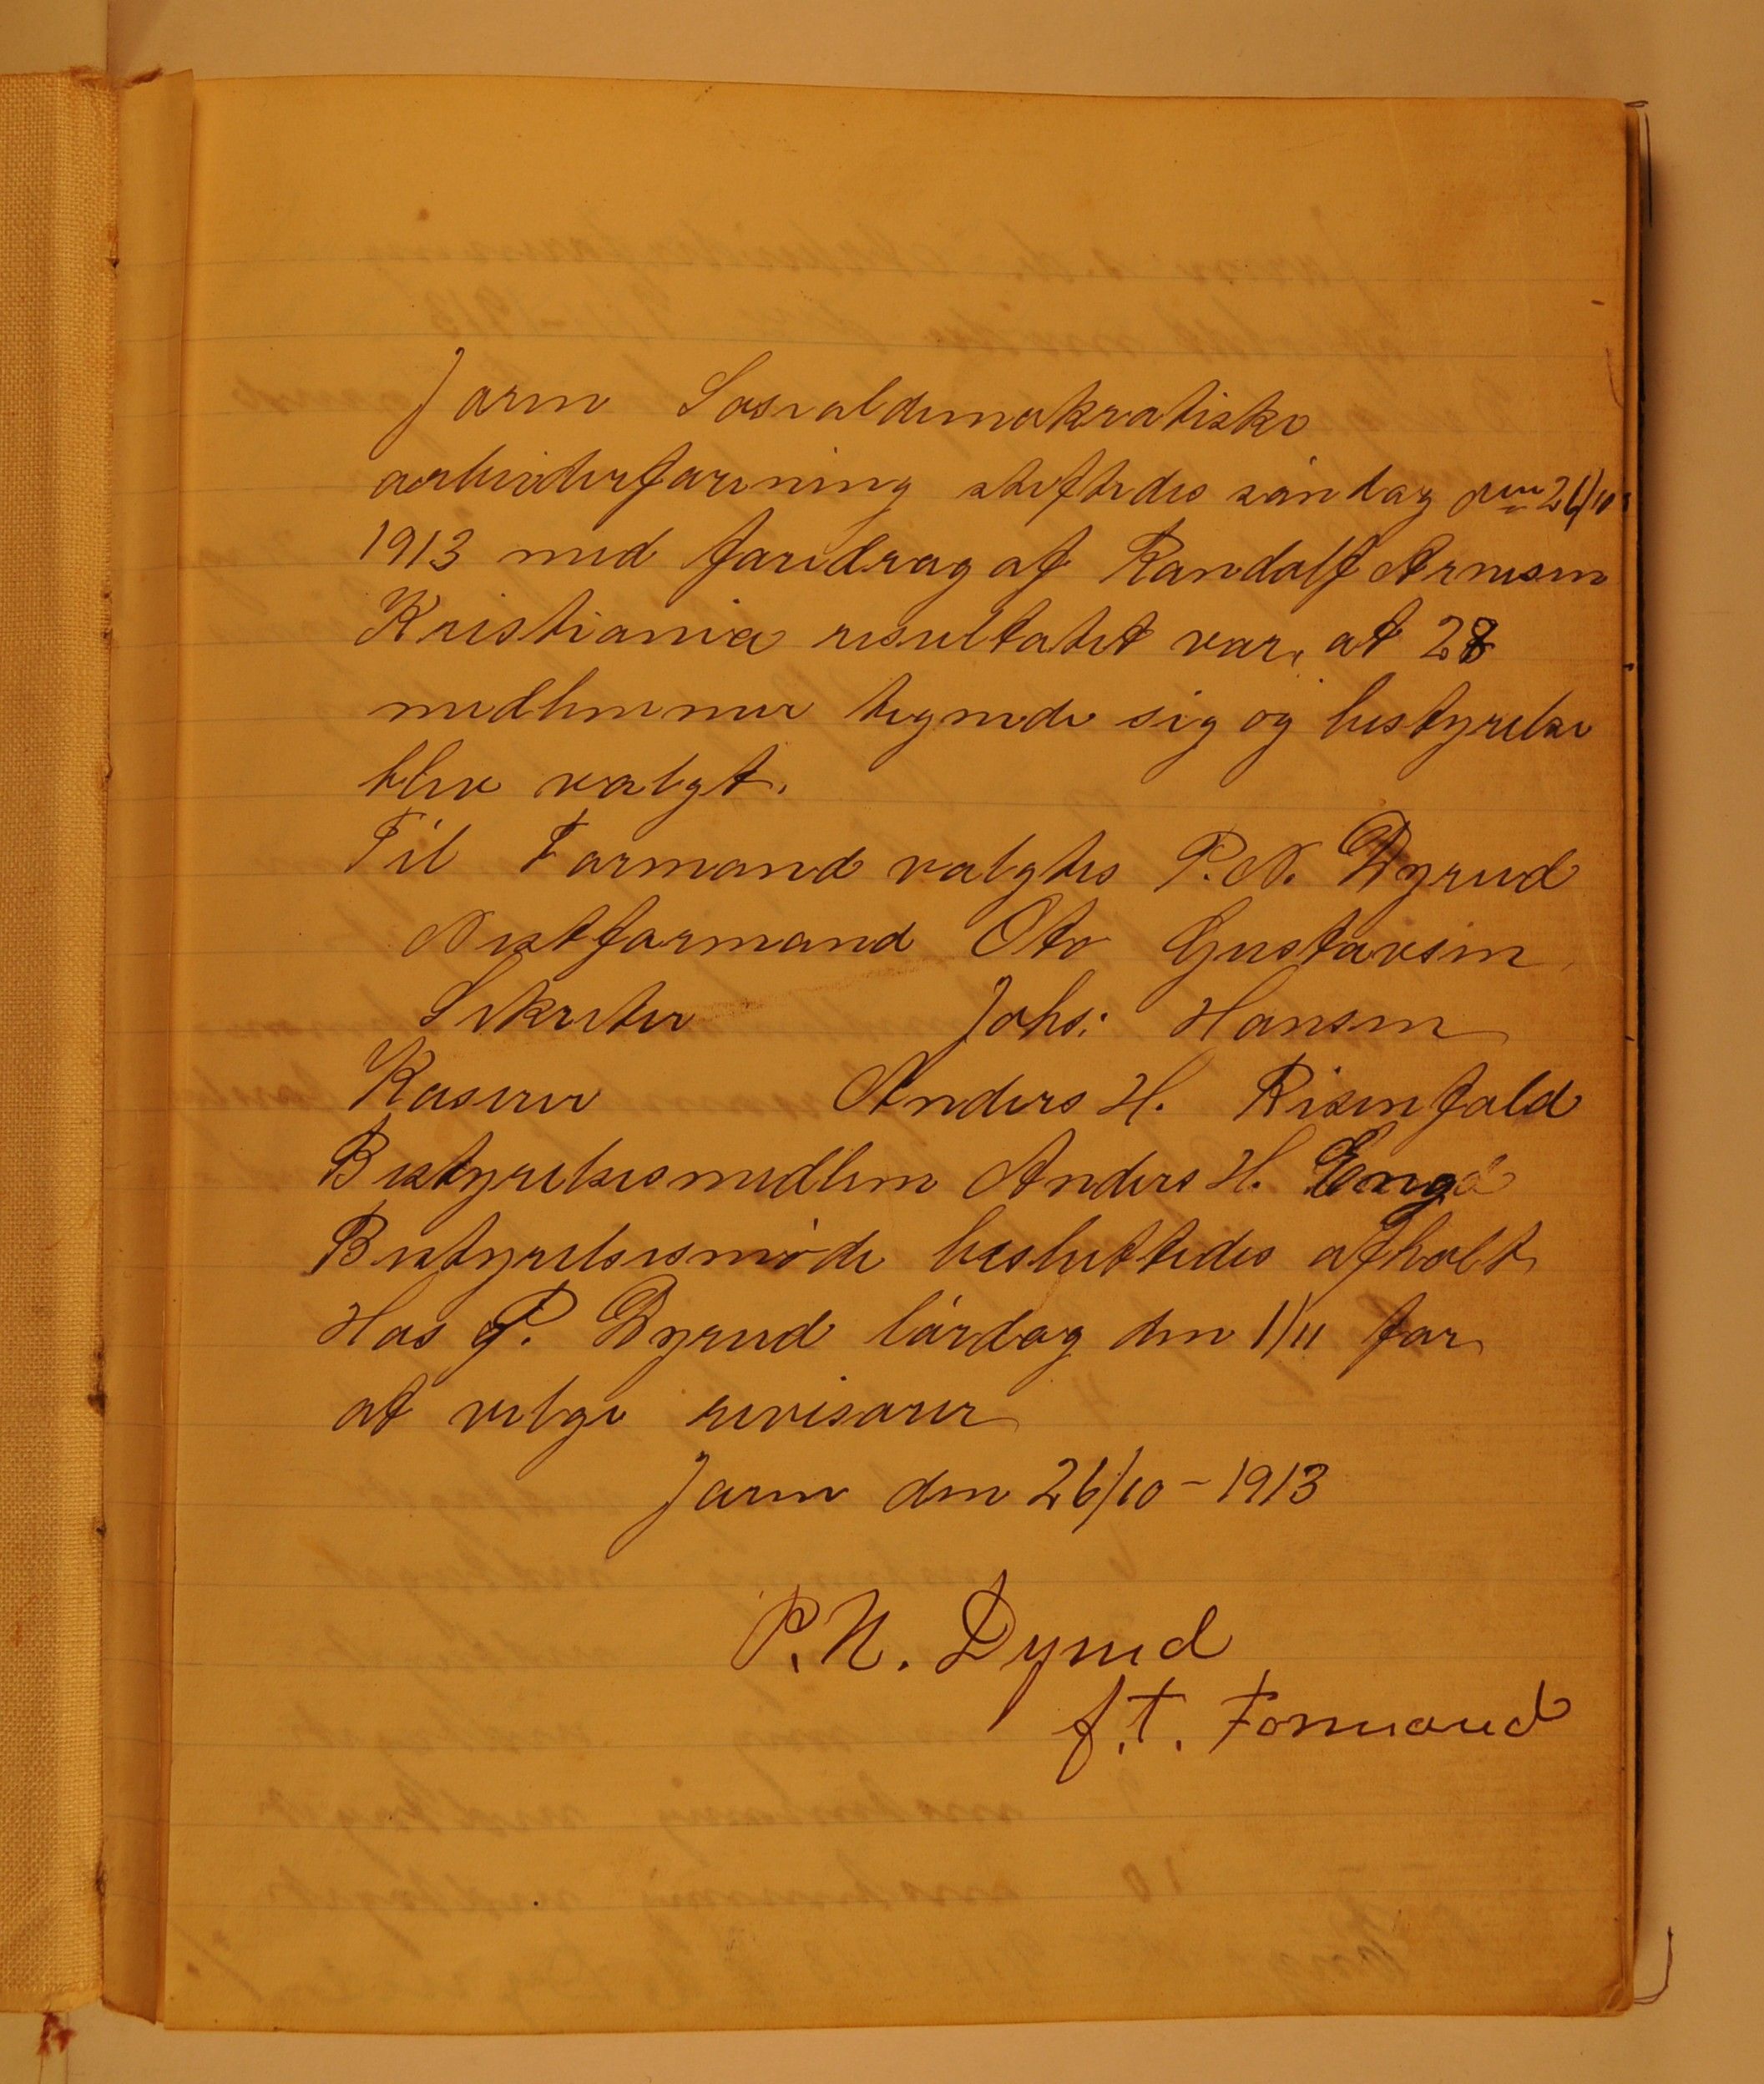 Jaren Sosialdemokratiske
arbeiderforening stiftedes søndag den 26/10
1913 med foredrag af Randolf Arnesen
Kristiania resultatet var, at 28
medlemmer tegnede sig og bestyrelse
blev valgt.
Til Formand valgtes P. N. Dyrud
Nestformand Oto Gustavsen
Sekreter Johs: Hansen
Kaserer Anders H. Risenfald
Bestyrelsesmedlem Anders H. Enge
Bestyrelsesmøde besluttedes afholt
Hos P. Dyrud lørdag den 1/11 for
at velge revisorer
Jaren den 26/10 - 1913
P. N. Dyrud
f. T. Formand